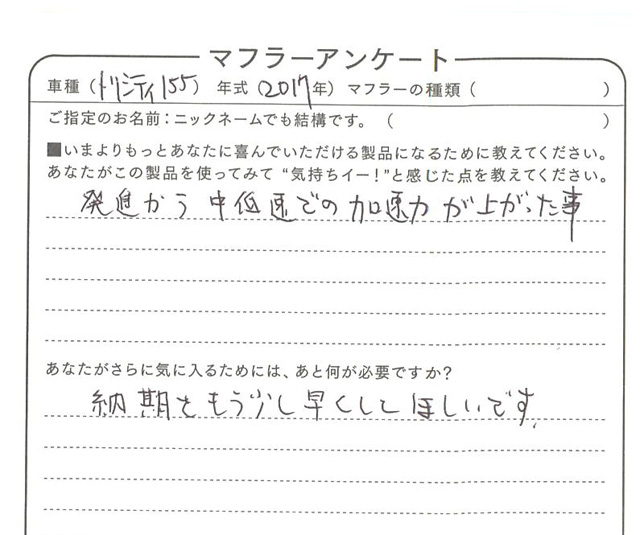 マフラーアンケート
車種（トリシティ155） 年式（2017年） マフラーの種類（ ）
ご指定のお名前：ニックネームでも結構です。（ ）
■いまよりもっとあなたに喜んでいただける製品になるために教えてください。
あなたがこの製品を使ってみて “気持ちイー！”と感じた点を教えてください。
発進から中低速での加速力が上がった事
あなたがさらに気に入るためには、あと何が必要ですか？
納期をもう少し早くしてほしいです。